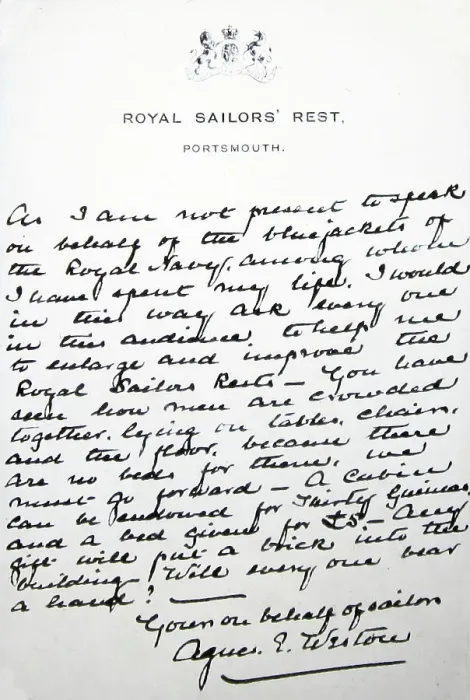 ROYAL SAILORS' REST,
PORTSMOUTH.
As I am not present to speak
on behalf of the bluejackets of
the Royal Navy, among whom
I have spent my life, I would
in this way ask every one
in this audience, to help me
to enlarge and improve the
Royal Sailors Rests — You have
seen how men are crowded
together, lying on tables, chairs,
and the floor, because there
are no beds for them, we
must go forward — A cabin
can be endowed for Thirty Guineas,
and a bed given for £5 — Any
gift will put a brick into the
building, Will every one bear
a hand? —
Yours on behalf of sailors
Agnes. E. Weston